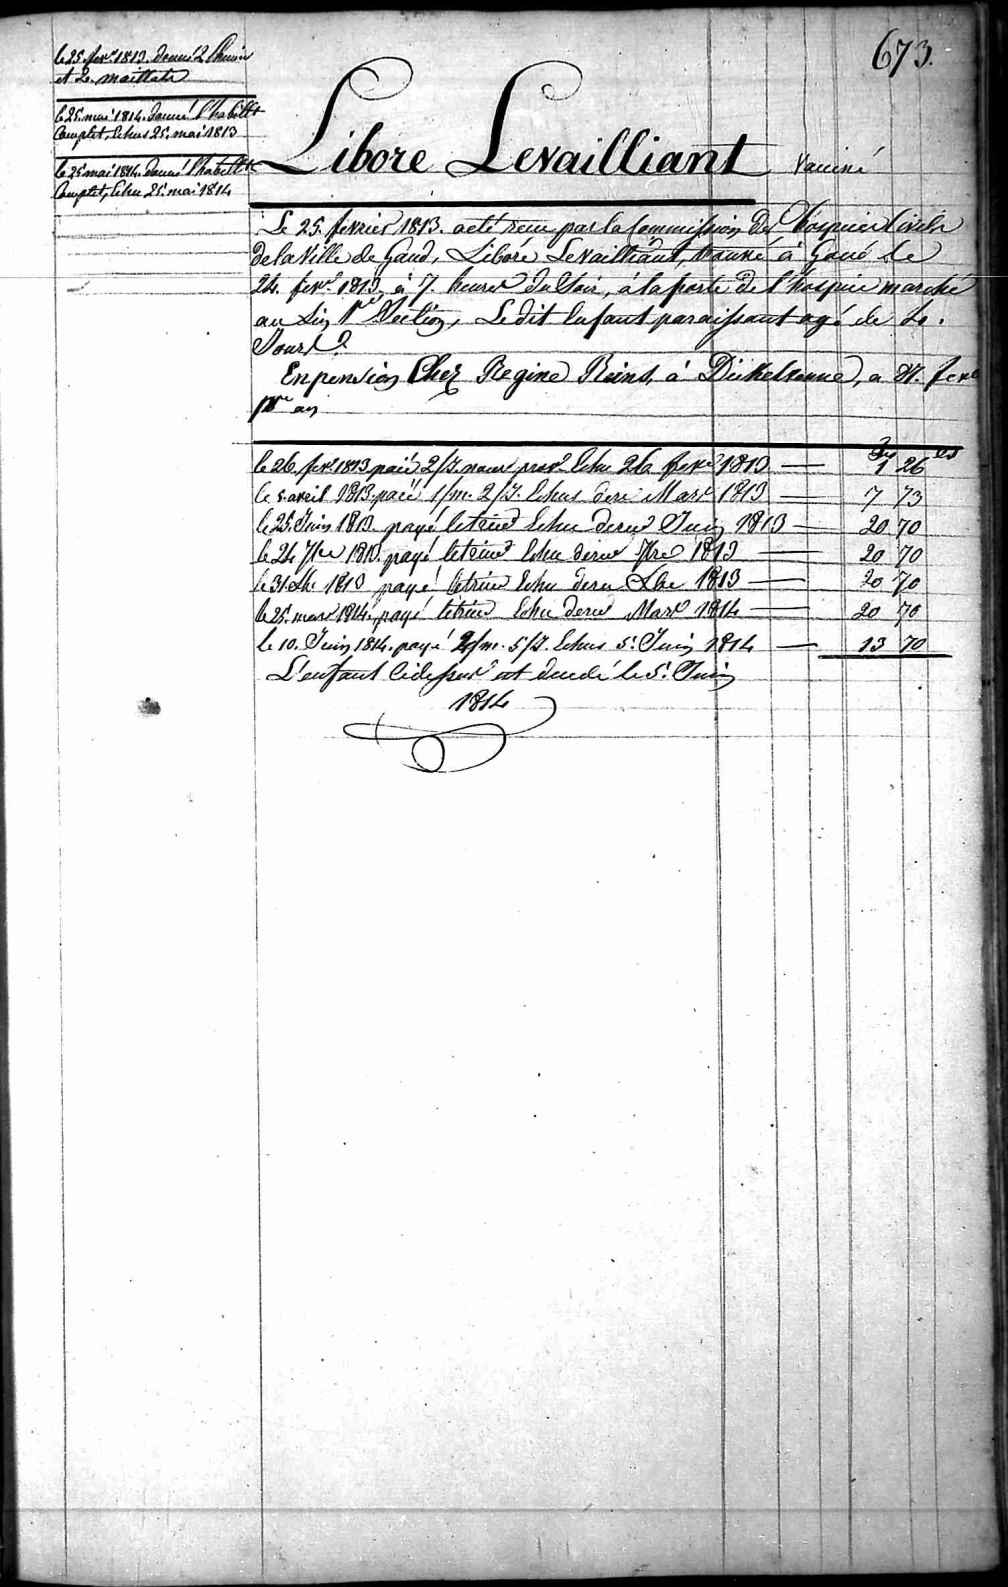 673.
le 25. fevr. 1813. donné 2 Chemis
et 2. maillots
le 25. mai 1814. donné l'habillt
Complet, Echu 25. mai 1813
le 25 mai 1814. donné l'habillt
Complet, Echu 25. mai 1814
Libore Levailliant vaciné
Le 25. février 1813. a eté reçu par la Commission des hospices Civils
de la Ville de Gand, Libore Levailliant, trouvé à Gand le
24. fevr. 1813, à 7. heures du Soir, à la porte de l'hospice marché
au Lin 1re Section, Ledit Enfant paraissant agé de 2.
Jours.
En pension Chez Regine Reins, à Dickelvenne, a fcs
pr an
fcs cs
le 26. fevr. 1813 paié 2/J. Echu 26 fevr. 1813 — 1 26
le 5. avril 1813. paié 1/m. 2/J. Echus dere Mars 1813 — 7 73
le 25. Juin 1813. payé letrim Echu dere Juin 1813 — 20 70
le 24 7bre 1813. payé letrim Echu dere 7bre 1813 — 20 70
le 31 Xbe 1813 payé letrim Echu dere Xbe 1813 — 20 70
le 25. mars 1814. payé letrim Echu dere Mars 1814 — 20 70
le 10. Juin 1814. payé 2/m. 5/J. Echus 5. Juin 1814 — 13 70
L'enfant Cidessus est decedé le 5. Juin
1814